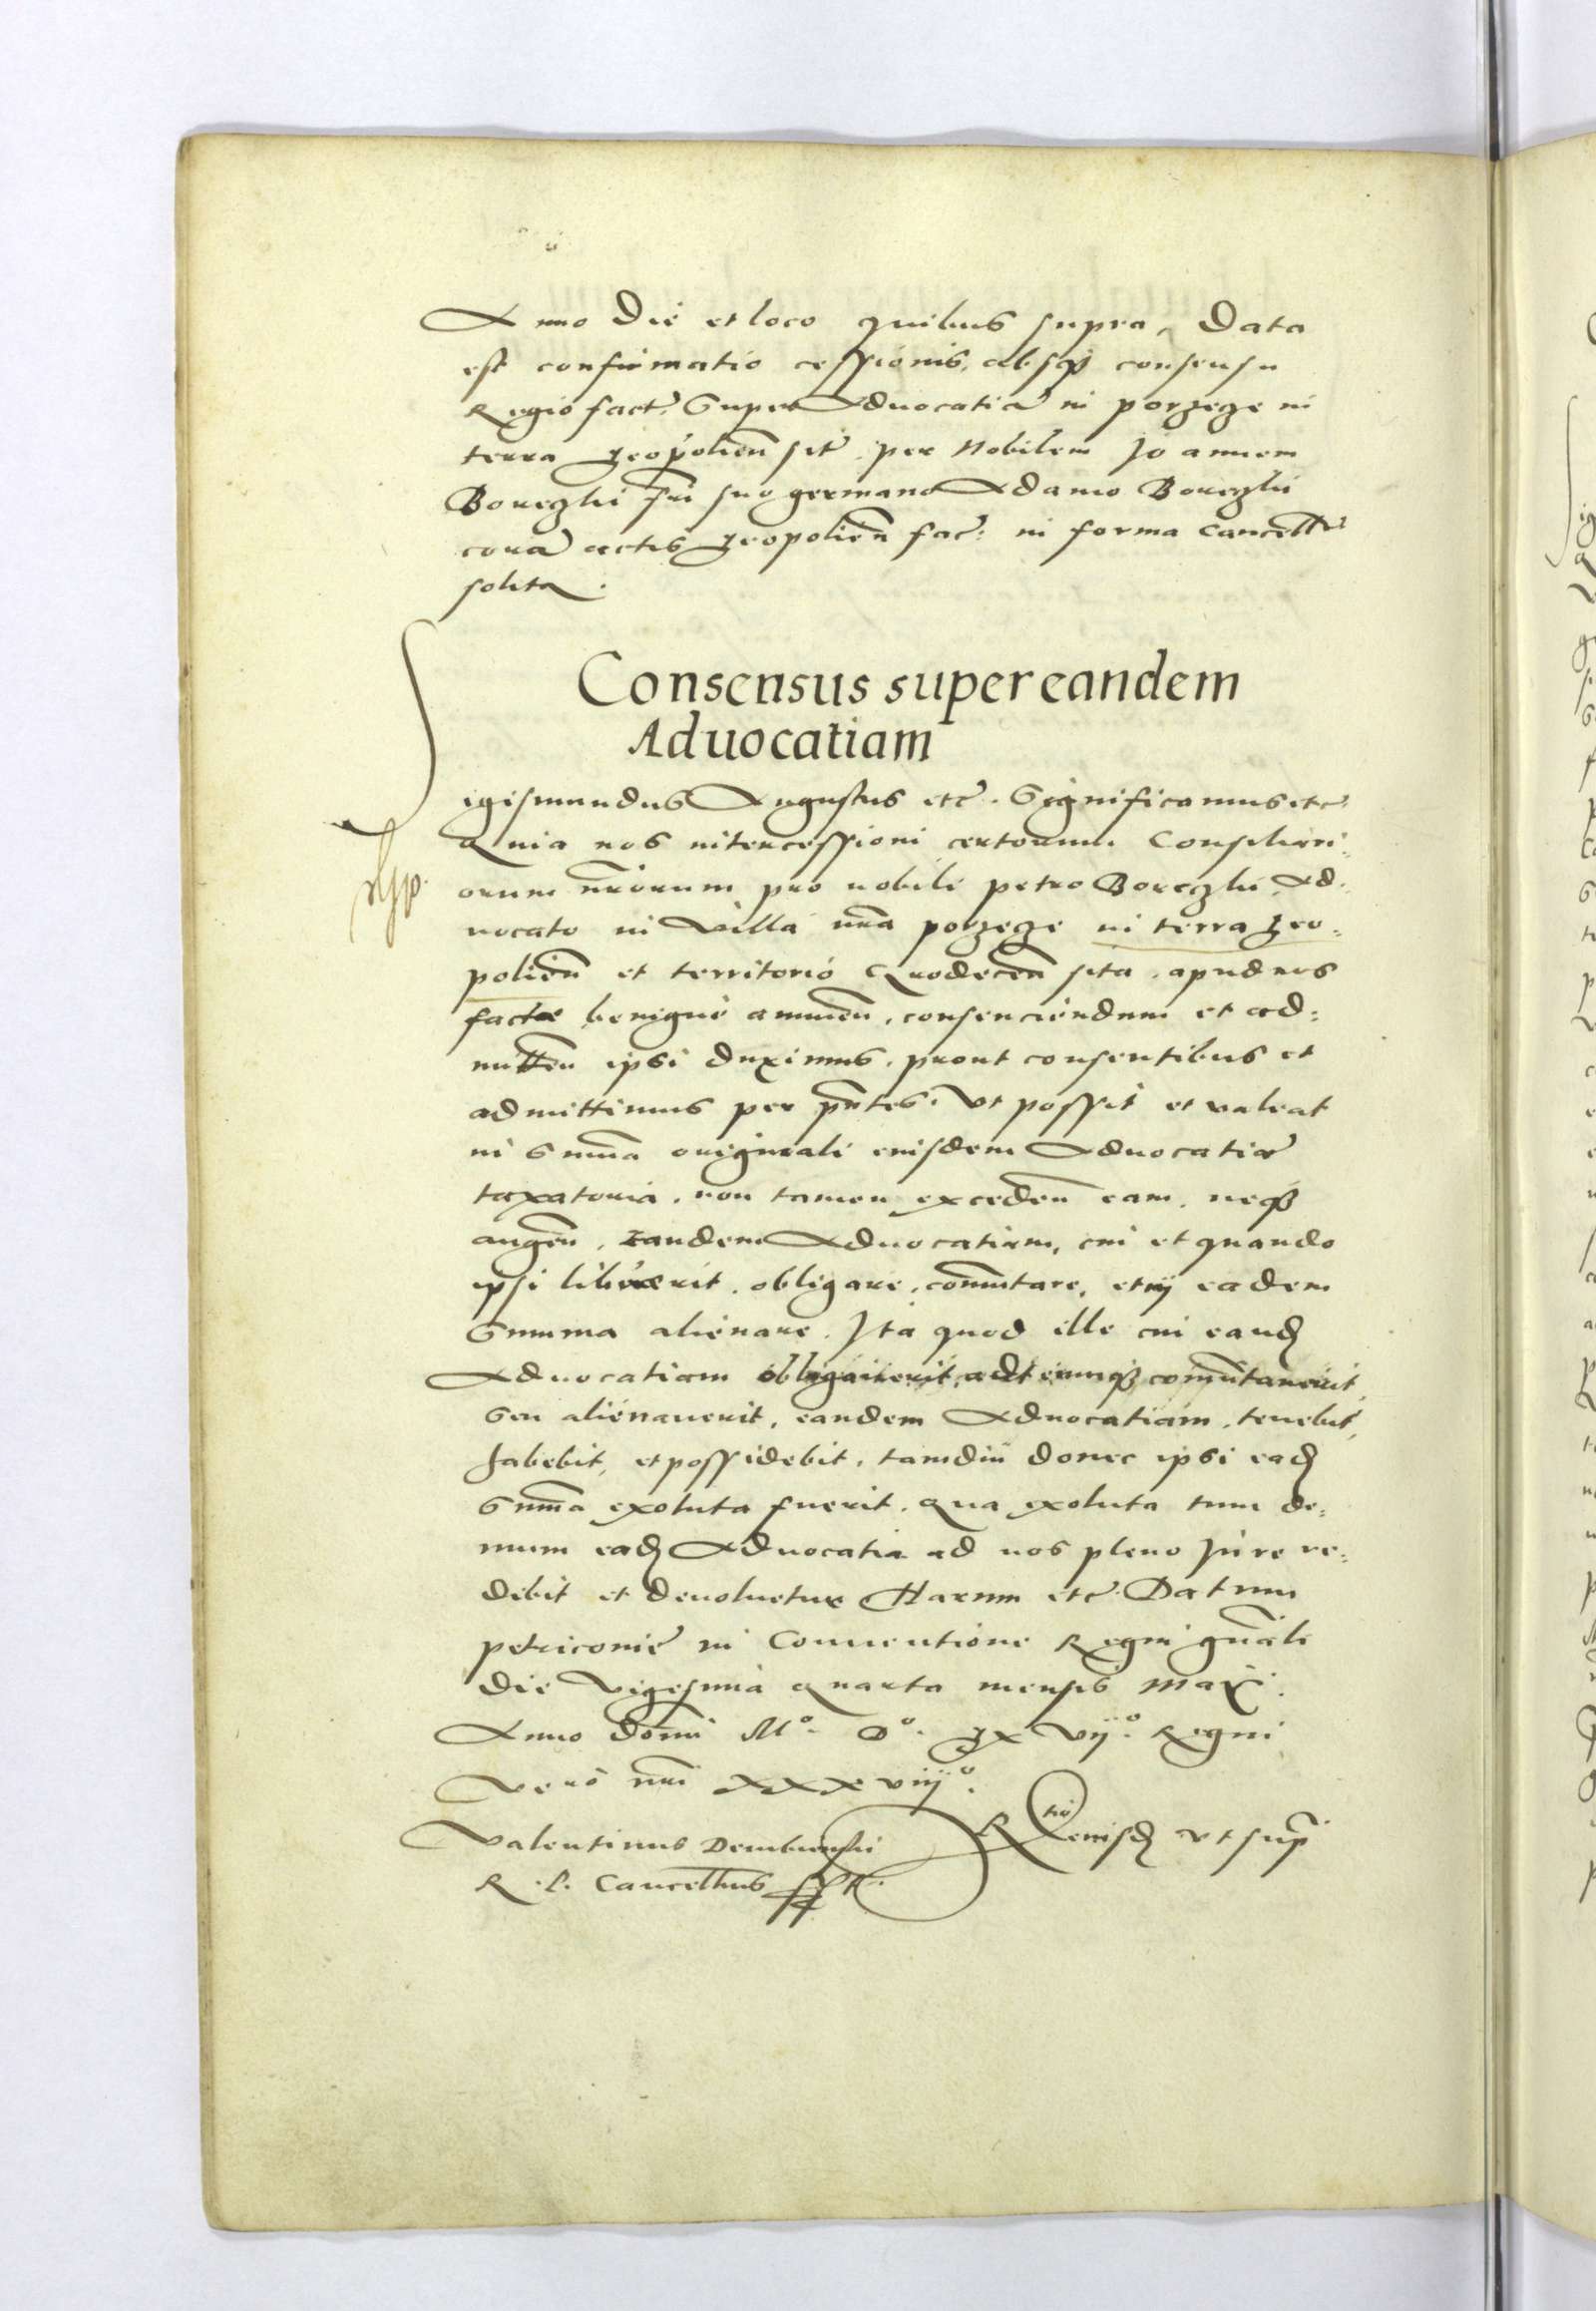 Anno Die et loco quibus supra, Data
est confirmatio cessionis, absq3 consensu
Regio fact: Super Aduocatia in porzeze in
terra Leopolien sit per Nobilem Joannem
Boreczki fri suo germano Adamo Boreczki
cora actis Leopolien fac: in forma Cancell
solita.
Consensus super eandem
Aduocatiam
Sigismundus Augustus etc. Significamus etc
Quia nos intercessioni certorum Consiliari
orum nrorum pro nobili petro Boreczki Ad
uocato in Villa nra porzeze in terra Leo
polien et territorio Grodecen sita, apud nos
factae benigne annuen, consenciendum et ad
mitten ipsi duximus, prout consentibus et
admittimus per pntes. Vt possit et valeat
in Summa originali eiusdem Aduocatiae
taxatoria, non tamen exceden eam, neq3
augen, eandem Aduocatiam, cui et quando
ipsi libuerit, obligare, commutare, et in eadem
Summa alienare. Ita quod ille cui eand
Aduocatiam obligauerit, commutauerit,
Seu alienauerit, eandem Aduocatiam, tenebit,
habebit, et possidebit, tamdiu donec ipsi ead
Summa exoluta fuerit. Qua exoluta tum de
mum ead Aduocatia ad nos pleno Jure re
debit et deuoluetur Harum etc. Datum
petricouie in Conuentione Regni gnali
Die Vigesima Quarta mensis Maii.
Anno Domi M° D° LX Vii° Regni
Vero nri XXXviii°
Valentinus Dembienski
R. P. Cancellrius sspt.
Rtio eiusd vt supr